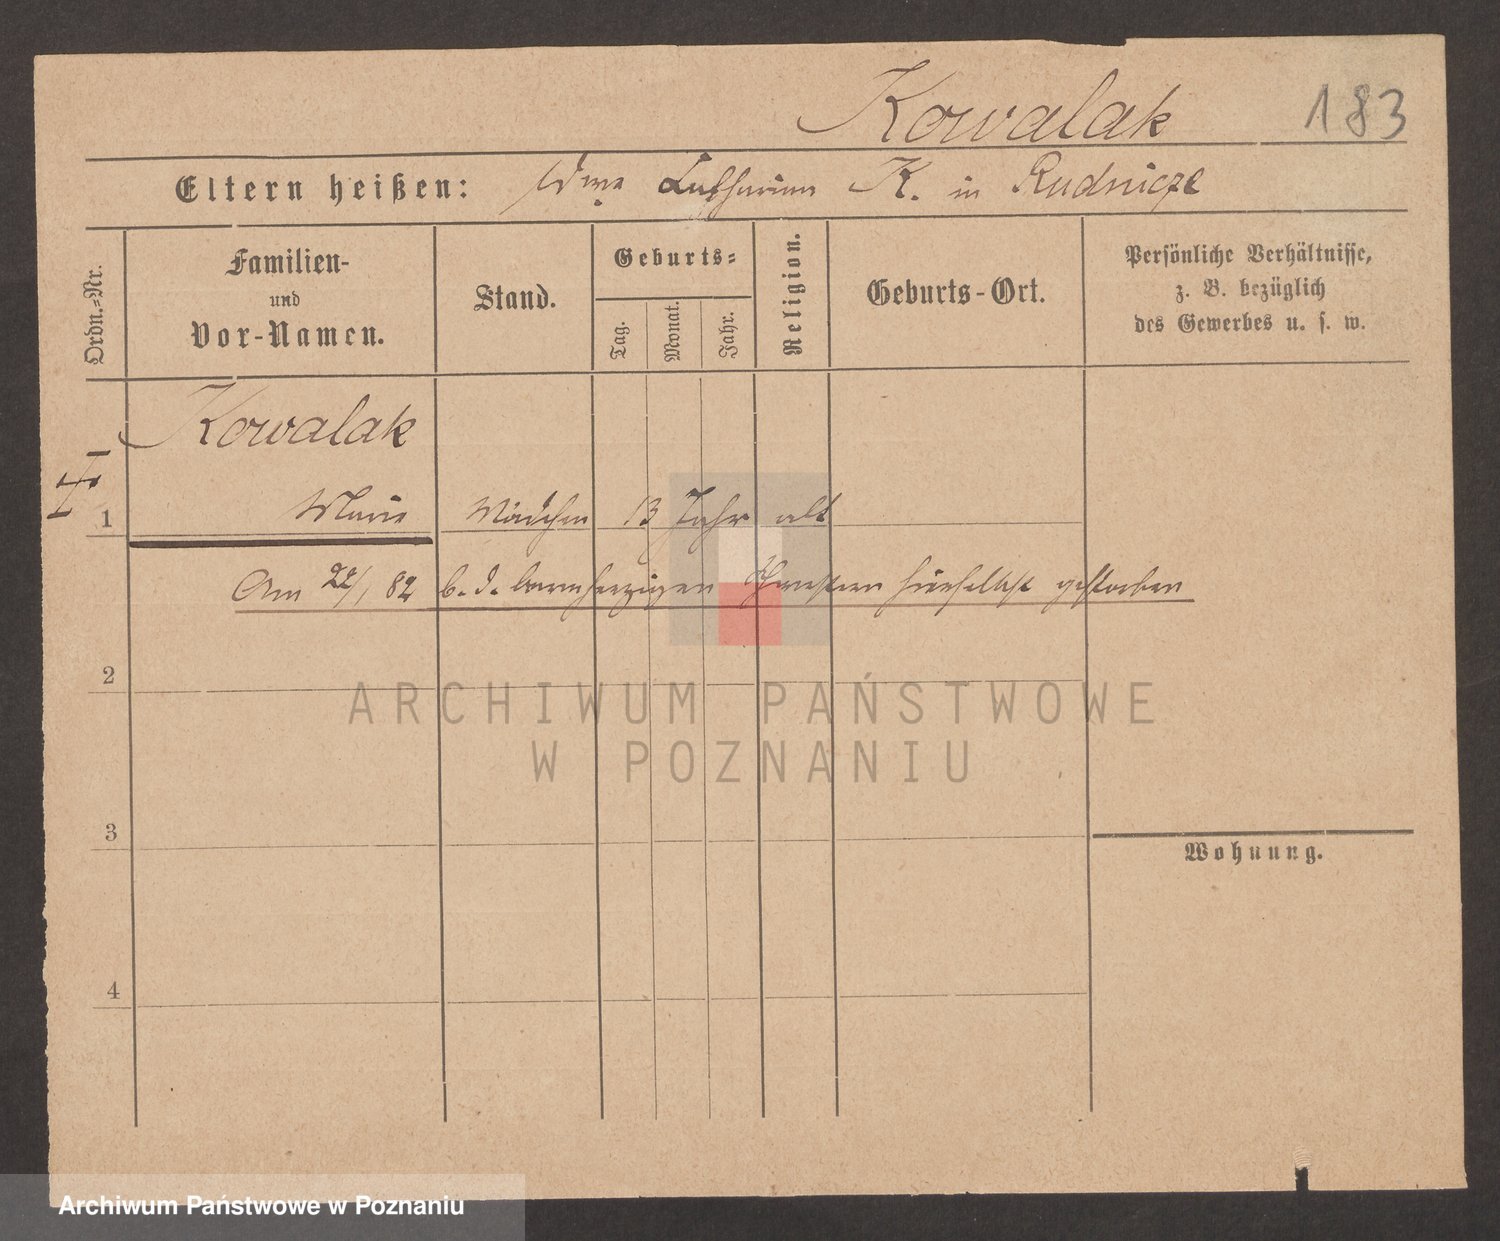 Kowalak 183
Eltern heißen: Wwe Catharina K. in Rudnicze
Ordn.-Nr.
Familien-
und
Vor-Namen.
Stand.
Geburts-
Tag.
Monat.
Jahr.
Religion.
Geburts-Ort.
Persönliche Verhältnisse,
z. B. bezüglich
des Gewerbes u. s. w.
Kowalak
1 Marie Mädchen 13 Jahr alt
Am 22/1 82 b. d. barmherzigen Schwestern hierselbst gestorben
2
ARCHIWUM PAŃSTWOWE
W POZNANIU
3
Wohnung.
4
Archiwum Państwowe w Poznaniu